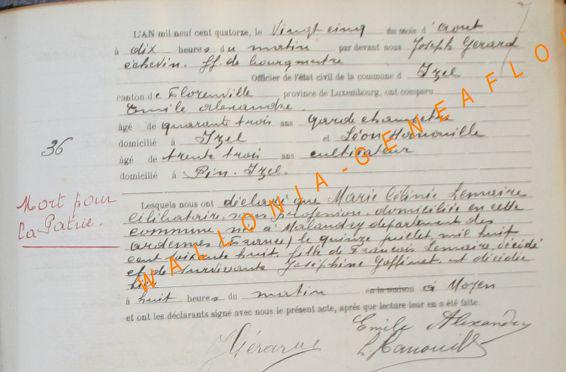 L'AN mil neuf cent quatorze, le Vingt cinq du mois d'août
à dix heures du matin par devant nous Joseph Gerard
échevin. ff de bourgmestre
Officier de l'état civil de la commune d Izel
canton de Florenville province de Luxembourg, ont comparu
Emile Alexandre
âgé de quarante trois ans garde champêtre
domicilié à Izel et Léon Hanouille
âgé de trente trois ans cultivateur
domicilié à Pin. Izel.
36
Mort pour
la Patrie.
Lesquels nous ont déclaré que Marie Lemaire
célibataire, sans profession, domiciliée en cette
commune née à Malandry département des
ardennes (France) le quinze juillet mil huit
cent soixante huit, fille de François Lemaire, décédé
et de survivante Joséphine Goffinet est décédée
à huit heures du matin en la maison à Moyen
et ont les déclarants signé avec nous le présent acte, après que lecture leur en a été faite.
Emile Alexandre
JGérard L Hanouille
WALLONIA-GENEAFLO